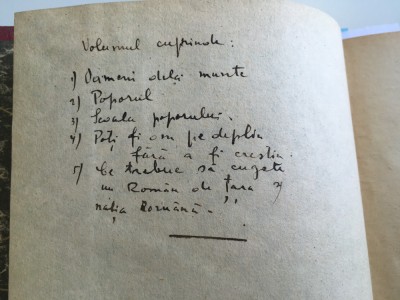 Volumul cuprinde:
1) Oameni de la munte
2) Poporul
3) Școala poporului.
4) Poți fi om pe deplin
fără a fi creștin.
5) Ce trebue să cugete
un Român de țara și
nația Română.